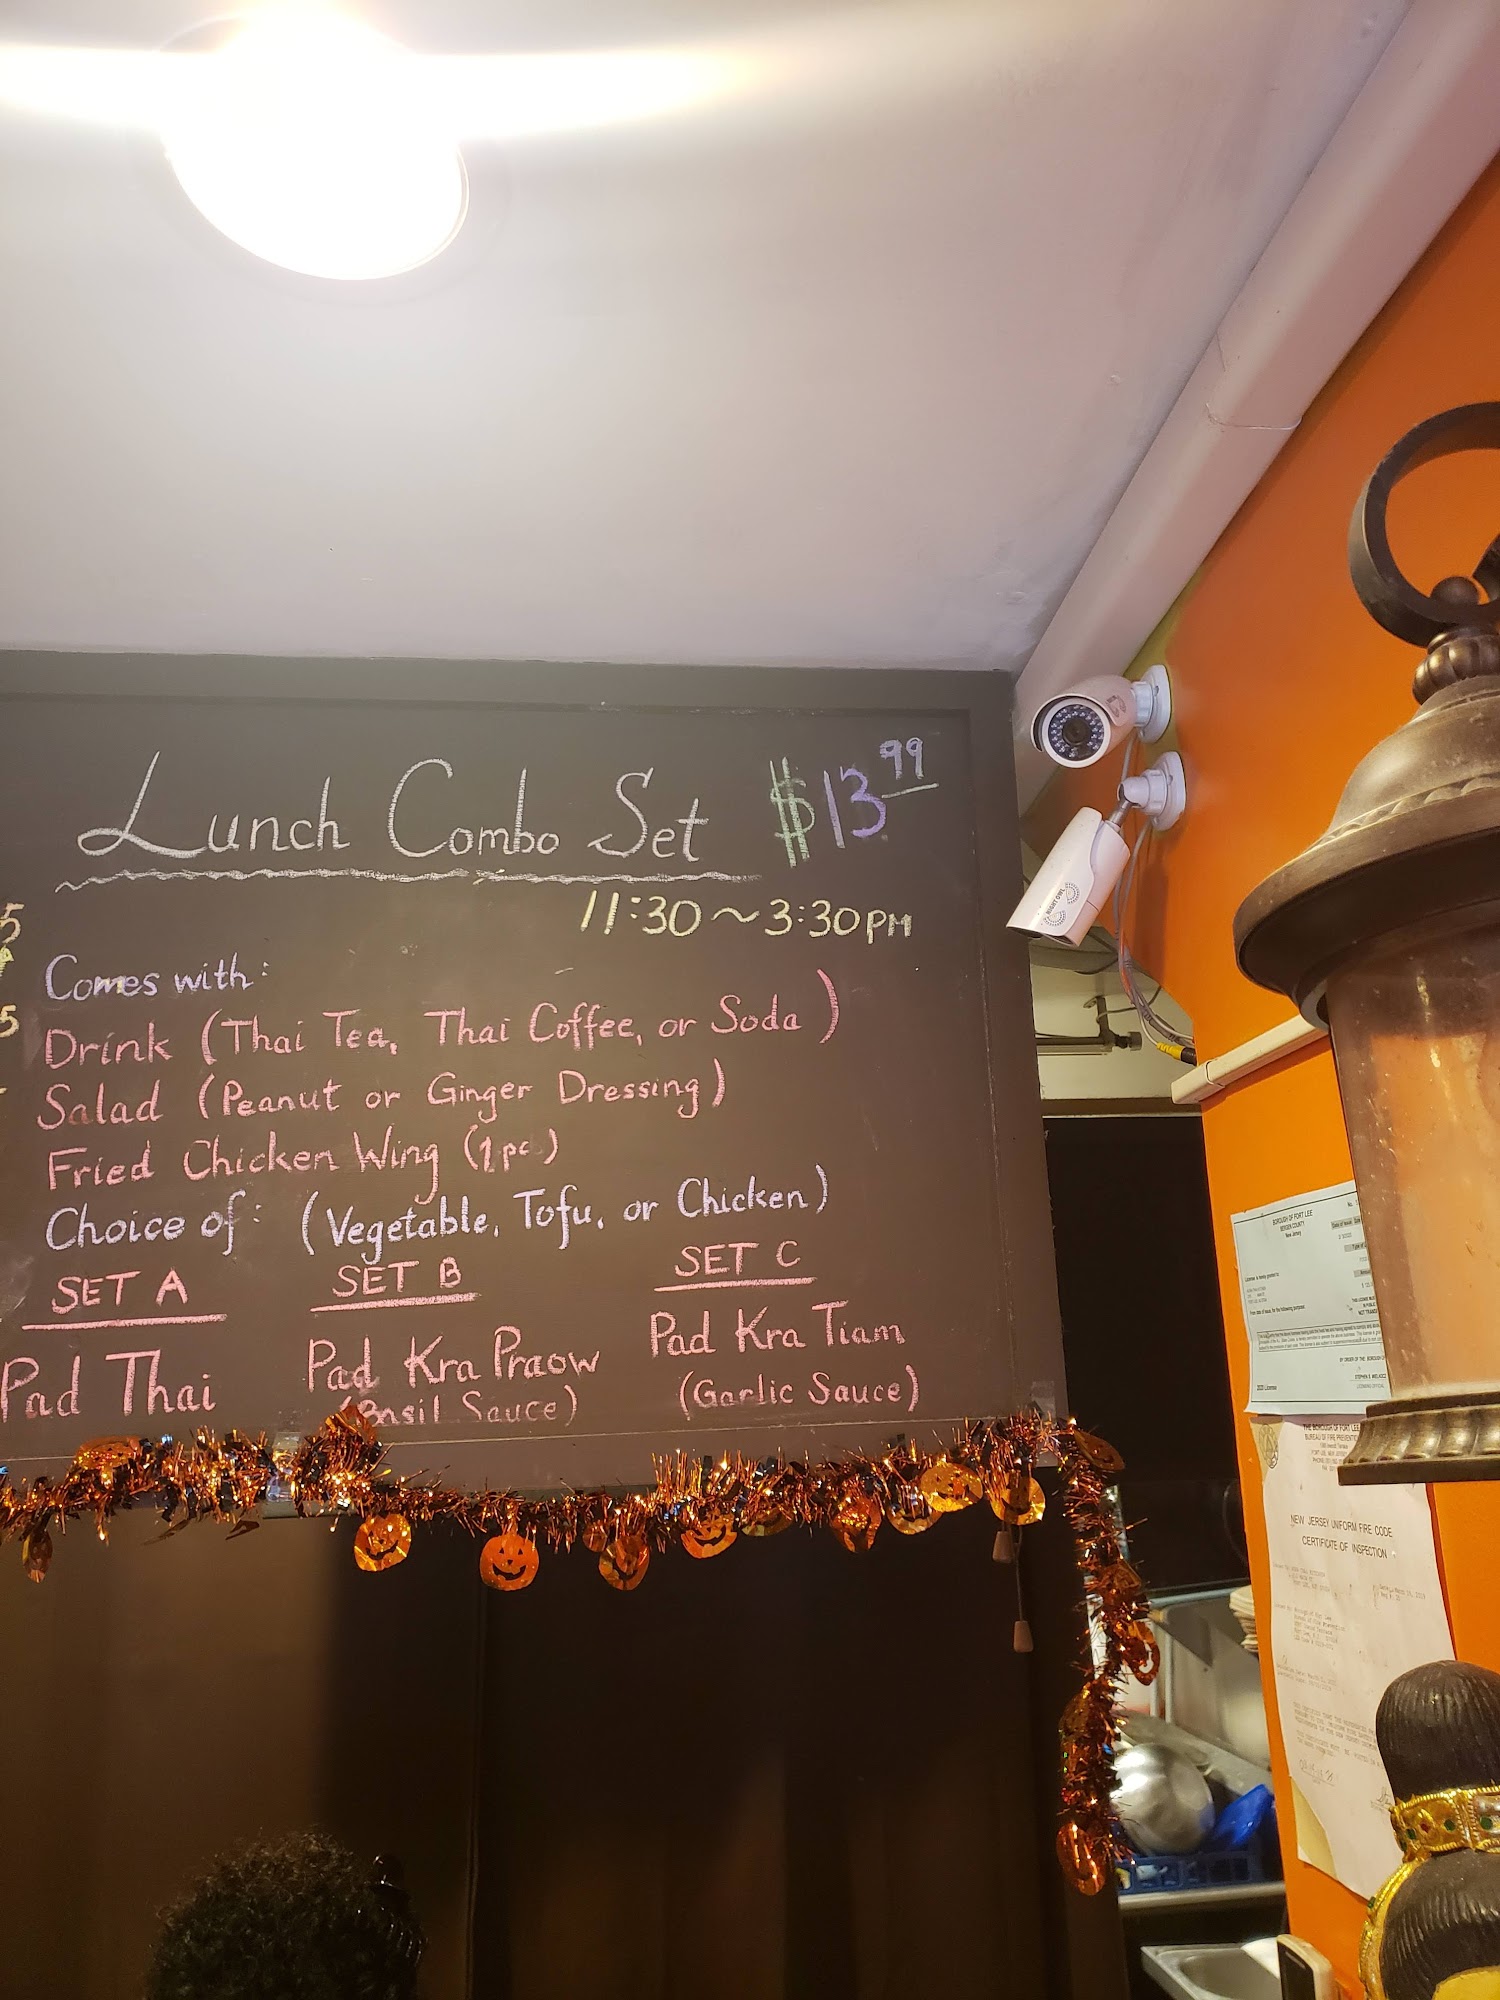 Lunch Combo Set $13.99
11:30~3:30PM
Comes with:
Drink (Thai Tea, Thai Coffee, or Soda)
Salad (Peanut or Ginger Dressing)
Fried Chicken Wing (1pc)
Choice of: (Vegetable, Tofu, or Chicken)
SET A
Pad Thai
SET B
Pad Kra Praow
(Basil Sauce)
SET C
Pad Kra Tiam
(Garlic Sauce)
5
5
NIGHT OWL
BOROUGH OF FORT LEE
BERGEN COUNTY
New Jersey
THE BOROUGH OF FORT LEE
BUREAU OF FIRE PREVENTION
NEW JERSEY UNIFORM FIRE CODE
CERTIFICATE OF INSPECTION